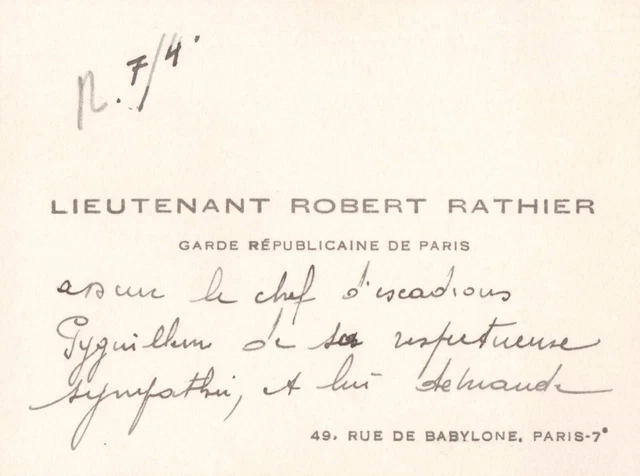 R. 7/4.
LIEUTENANT ROBERT RATHIER
GARDE RÉPUBLICAINE DE PARIS
assure le chef d'escadrons
de sa respectueuse
sympathie, et lui demande
49, RUE DE BABYLONE, PARIS-7ᵉ